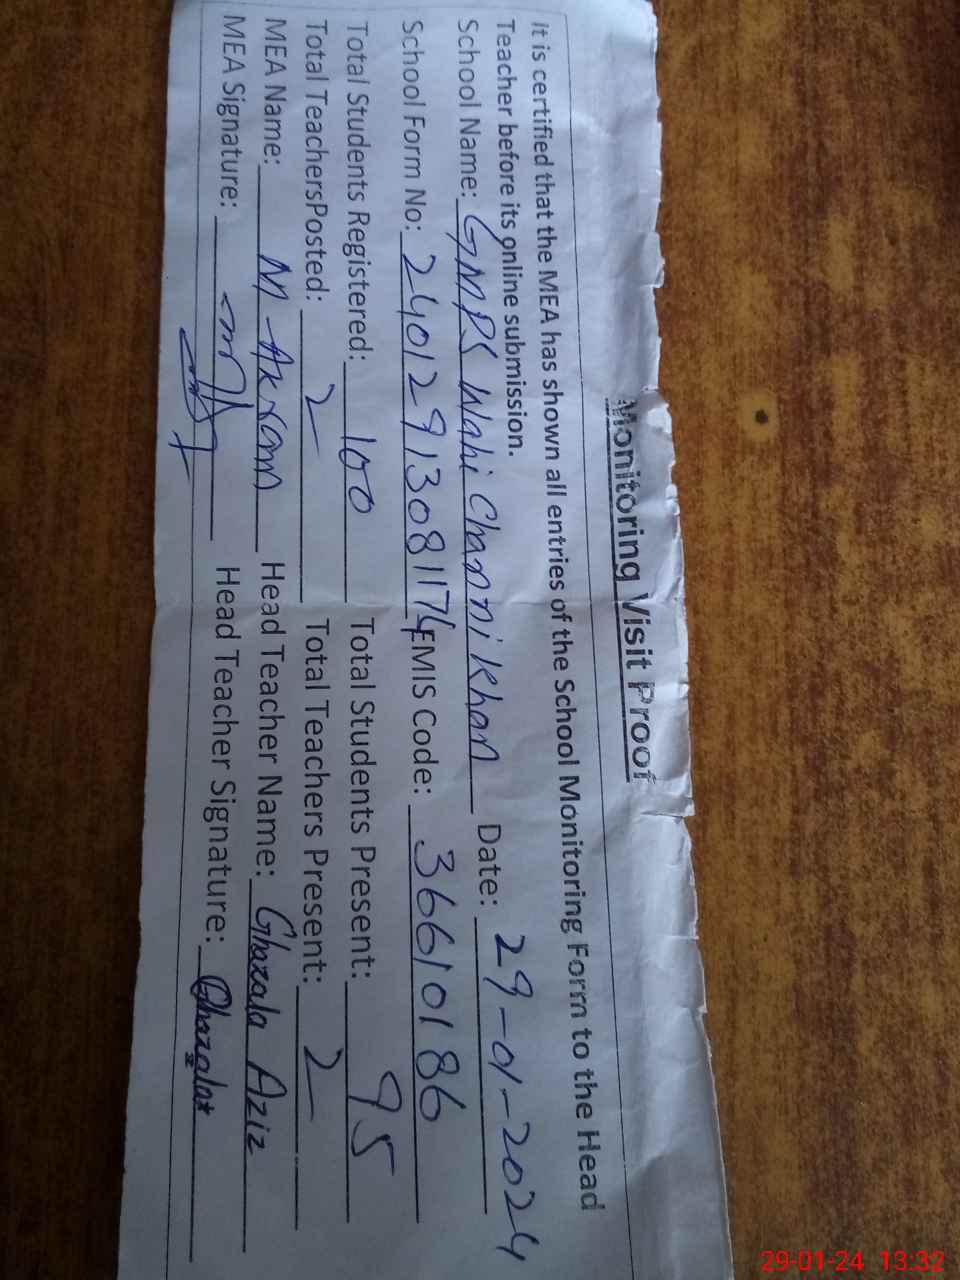 Monitoring Visit Proof
It is certified that the MEA has shown all entries of the School Monitoring Form to the Head
Teacher before its online submission.
School Name: GMPS Wahi Channi Khan Date: 29-01-2024
School Form No: 24012913081174 EMIS Code: 36610186
Total Students Registered: 100 Total Students Present: 95
Total TeachersPosted: 2 Total Teachers Present: 2
MEA Name: M Akram Head Teacher Name: Ghazala Aziz
MEA Signature: Head Teacher Signature: Ghazala
29-01-24 13:32